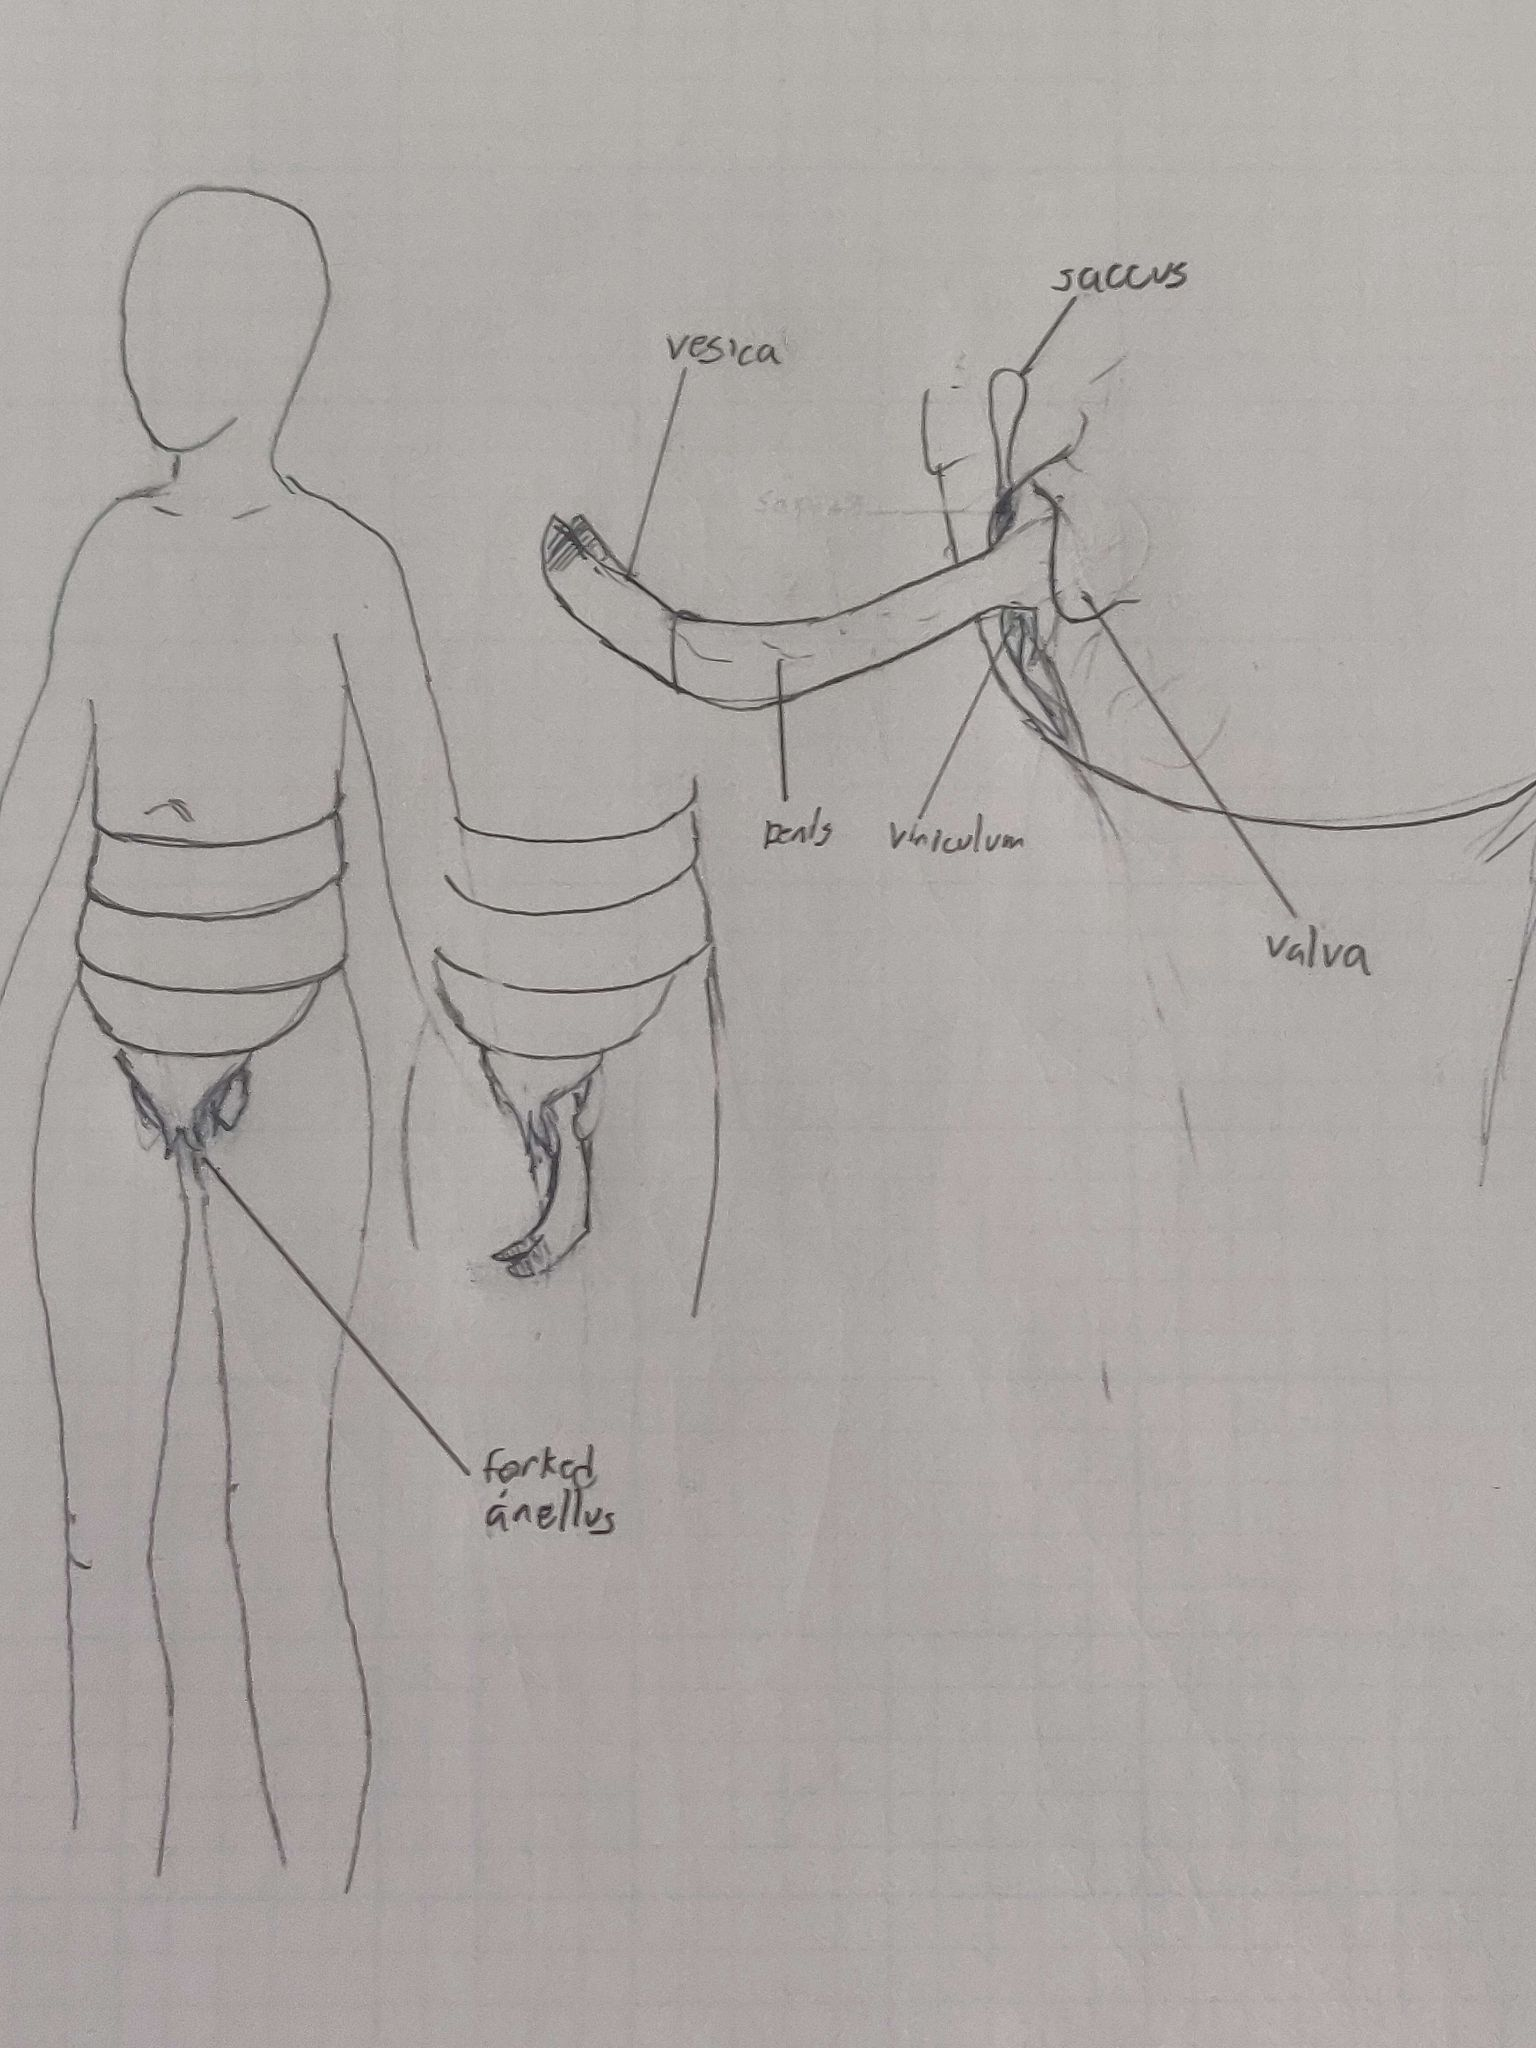 saccus
vesica
penis
viniculum
valva
forked
anellus